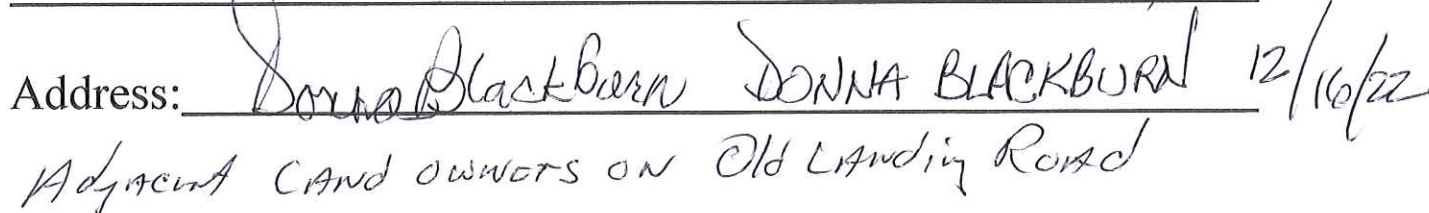 Address: Donna Blackburn DONNA BLACKBURN 12/16/22
Adjacent Land owners on Old Landing Road